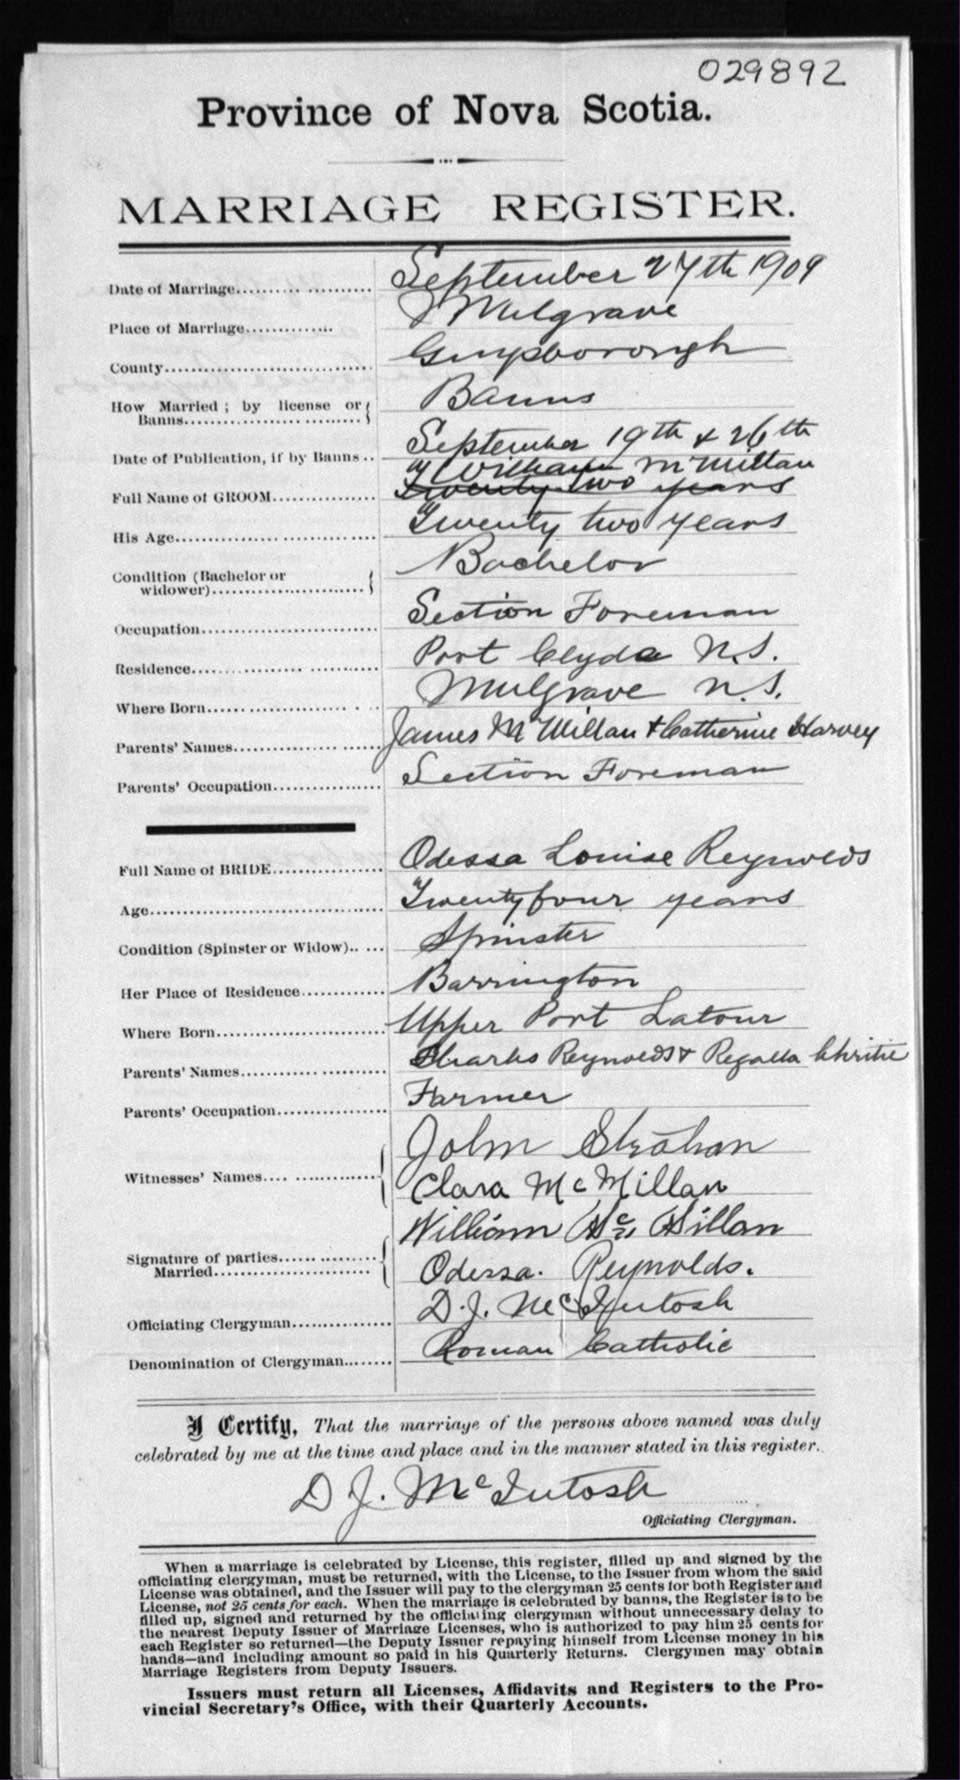 029892
Province of Nova Scotia.
MARRIAGE REGISTER.
Date of Marriage.................... September 27th 1909
Place of Marriage............. Mulgrave
County.............................. Guysborough
How Married ; by license or
Banns.......................... Banns
Date of Publication, if by Banns .. September 19th & 26th
Full Name of GROOM............... William McMillan
Twenty two years
His Age.............................. Twenty two years
Condition (Bachelor or
widower)....................... Bachelor
Occupation.......................... Section Foreman
Residence........................... Port Clyde N.S.
Where Born...................... Mulgrave N.S.
Parents' Names..................... James McMillan & Catherine Harvey
Parents' Occupation................ Section Foreman
Full Name of BRIDE................ Odessa Louise Reynolds
Age................................... Twenty four years
Condition (Spinster or Widow).. ... Spinster
Her Place of Residence............. Barrington
Where Born......................... Upper Port Latour
Parents' Names..................... Charles Reynolds & Christie
Parents' Occupation................ Farmer
Witnesses' Names.... ............. John Strahan
Clara McMillan
Signature of parties............... William McMillan
Married....................... Odessa. Reynolds.
Officiating Clergyman............... D.J. McIntosh
Denomination of Clergyman....... Roman Catholic
I Certify, That the marriage of the persons above named was duly
celebrated by me at the time and place and in the manner stated in this register.
D J. McIntosh
Officiating Clergyman.
When a marriage is celebrated by License, this register, filled up and signed by the
officiating clergyman, must be returned, with the License, to the Issuer from whom the said
License was obtained, and the Issuer will pay to the clergyman 25 cents for both Register and
License, not 25 cents for each. When the marriage is celebrated by banns, the Register is to be
filled up, signed and returned by the officiating clergyman without unnecessary delay to
the nearest Deputy Issuer of Marriage Licenses, who is authorized to pay him 25 cents for
each Register so returned—the Deputy Issuer repaying himself from License money in his
hands—and including amount so paid in his Quarterly Returns. Clergymen may obtain
Marriage Registers from Deputy Issuers.
Issuers must return all Licenses, Affidavits and Registers to the Pro-
vincial Secretary's Office, with their Quarterly Accounts.